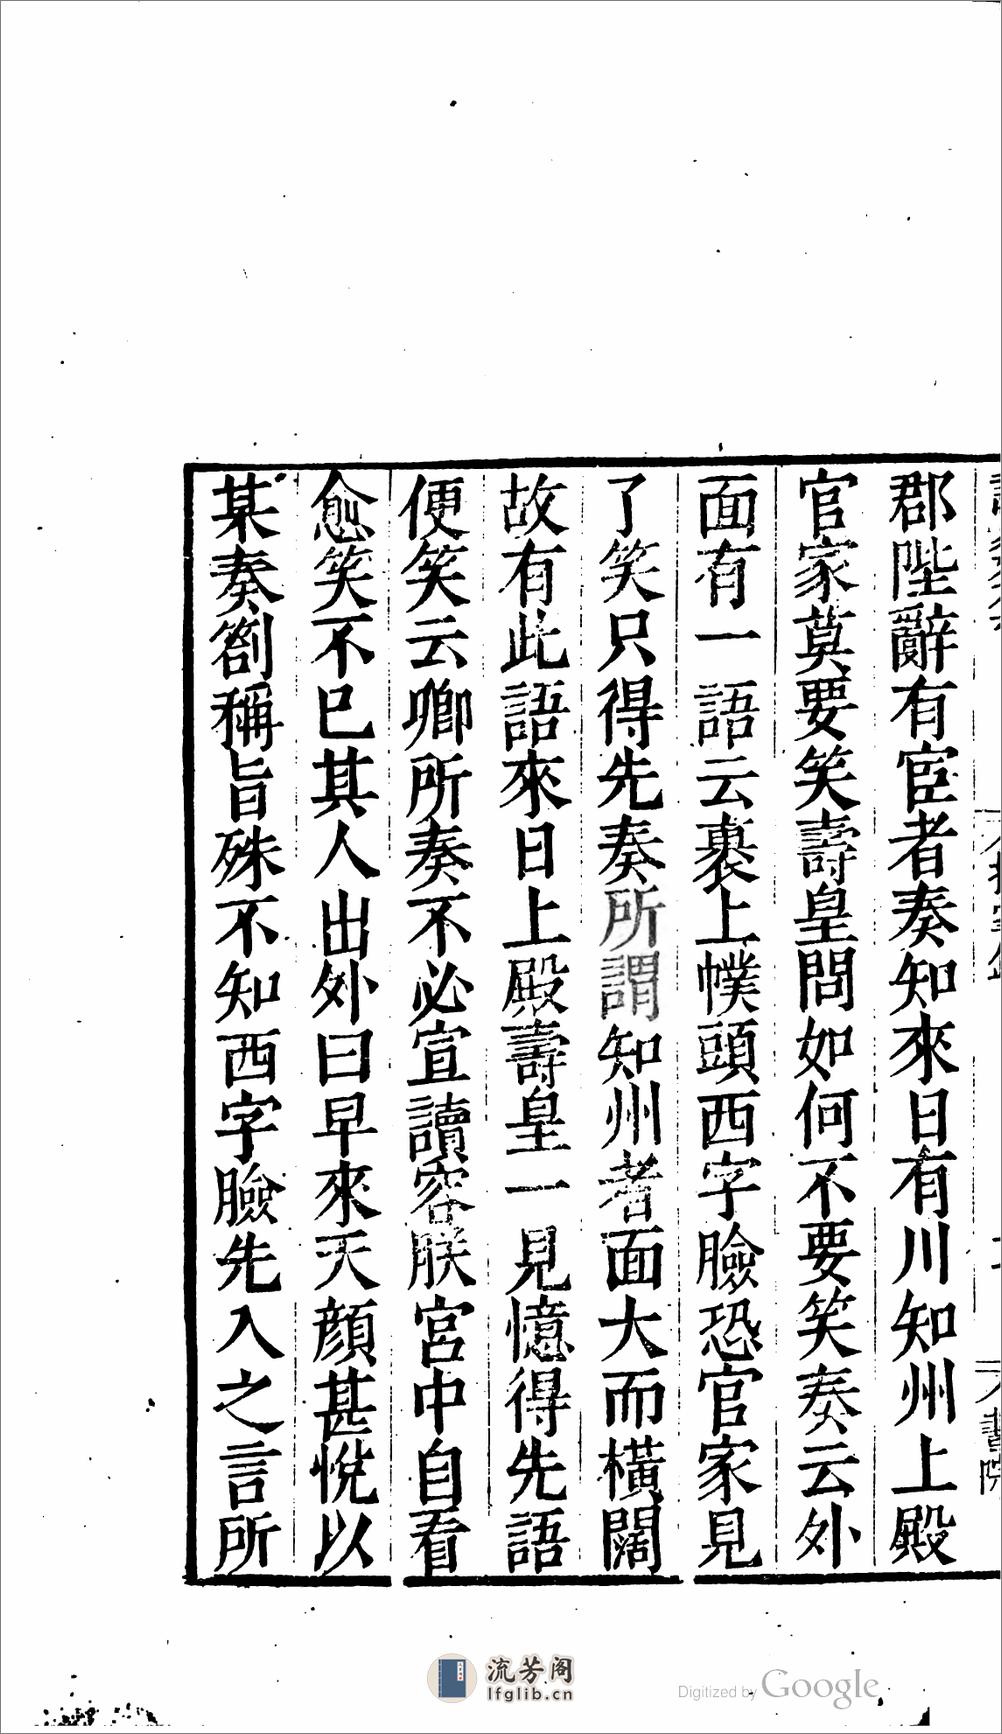 郡陛辭有宦者奏知來日有川知州上殿
官家莫要笑壽皇問如何不要笑奏云外
面有一語云裹上幞頭西字臉恐官家見
了笑只得先奏所謂知州者面大而橫闊
故有此語來日上殿壽皇一見憶得先語
便笑云卿所奏不必宣讀容朕宮中自看
愈笑不已其人出外曰早來天顏甚悅以
某奏劄稱旨殊不知西字臉先入之言所
流芳阁
lfglib.cn
Digitized by Google